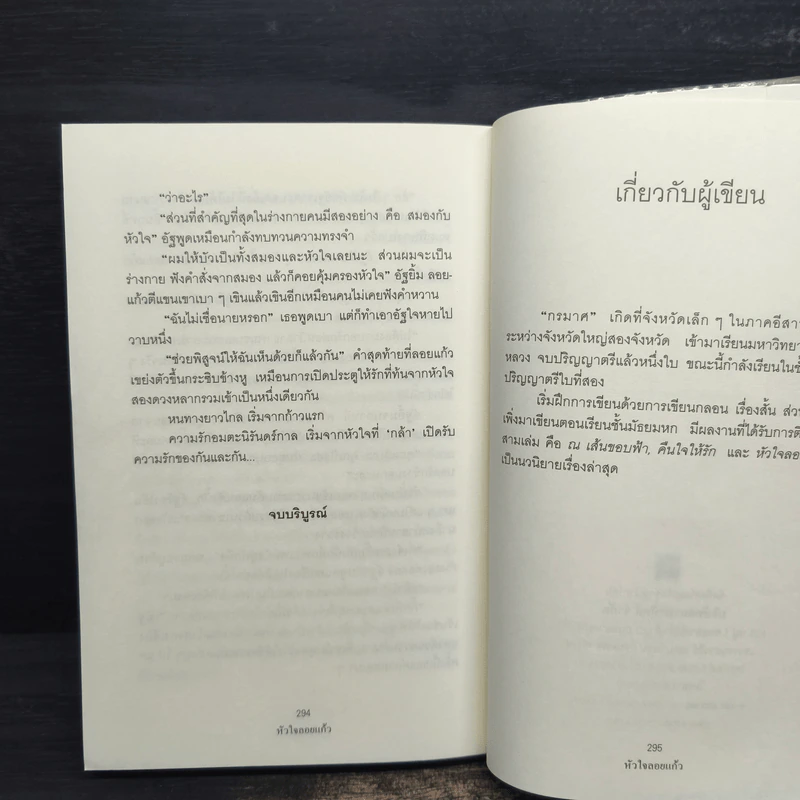 “ว่าอะไร”
“ส่วนที่สำคัญที่สุดในร่างกายคนมีสองอย่าง คือ สมองกับ
หัวใจ” อัฐพูดเหมือนกำลังทบทวนความทรงจำ
“ผมให้บัวเป็นทั้งสมองและหัวใจเลยนะ ส่วนผมจะเป็น
ร่างกาย ฟังคำสั่งจากสมอง แล้วก็คอยคุ้มครองหัวใจ” อัฐยิ้ม ลอย-
แก้วตีแขนเขาเบา ๆ เขินแล้วเขินอีกเหมือนคนไม่เคยฟังคำหวาน
“ฉันไม่เชื่อนายหรอก” เธอพูดเบา แต่ก็ทำเอาอัฐใจหายไป
วาบหนึ่ง
“ช่วยพิสูจน์ให้ฉันเห็นด้วยก็แล้วกัน” คำสุดท้ายที่ลอยแก้ว
เขย่งตัวขึ้นกระซิบข้างหู เหมือนการเปิดประตูให้รักที่ท้นจากหัวใจ
สองดวงหลากรวมเข้าเป็นหนึ่งเดียวกัน
หนทางยาวไกล เริ่มจากก้าวแรก
ความรักอมตะนิรันดร์กาล เริ่มจากหัวใจที่ ‘กล้า’ เปิดรับ
ความรักของกันและกัน...
จบบริบูรณ์
294
หัวใจลอยแก้ว
เกี่ยวกับผู้เขียน
“กรมาศ” เกิดที่จังหวัดเล็ก ๆ ในภาคอีสาน
ระหว่างจังหวัดใหญ่สองจังหวัด เข้ามาเรียนมหาวิทยา
หลวง จบปริญญาตรีแล้วหนึ่งใบ ขณะนี้กำลังเรียนในชั้
ปริญญาตรีใบที่สอง
เริ่มฝึกการเขียนด้วยการเขียนกลอน เรื่องสั้น ส่วน
เพิ่งมาเขียนตอนเรียนชั้นมัธยมหก มีผลงานที่ได้รับการตี
สามเล่ม คือ ณ เส้นขอบฟ้า, คืนใจให้รัก และ หัวใจลอย
เป็นนวนิยายเรื่องล่าสุด
295
หัวใจลอยแก้ว